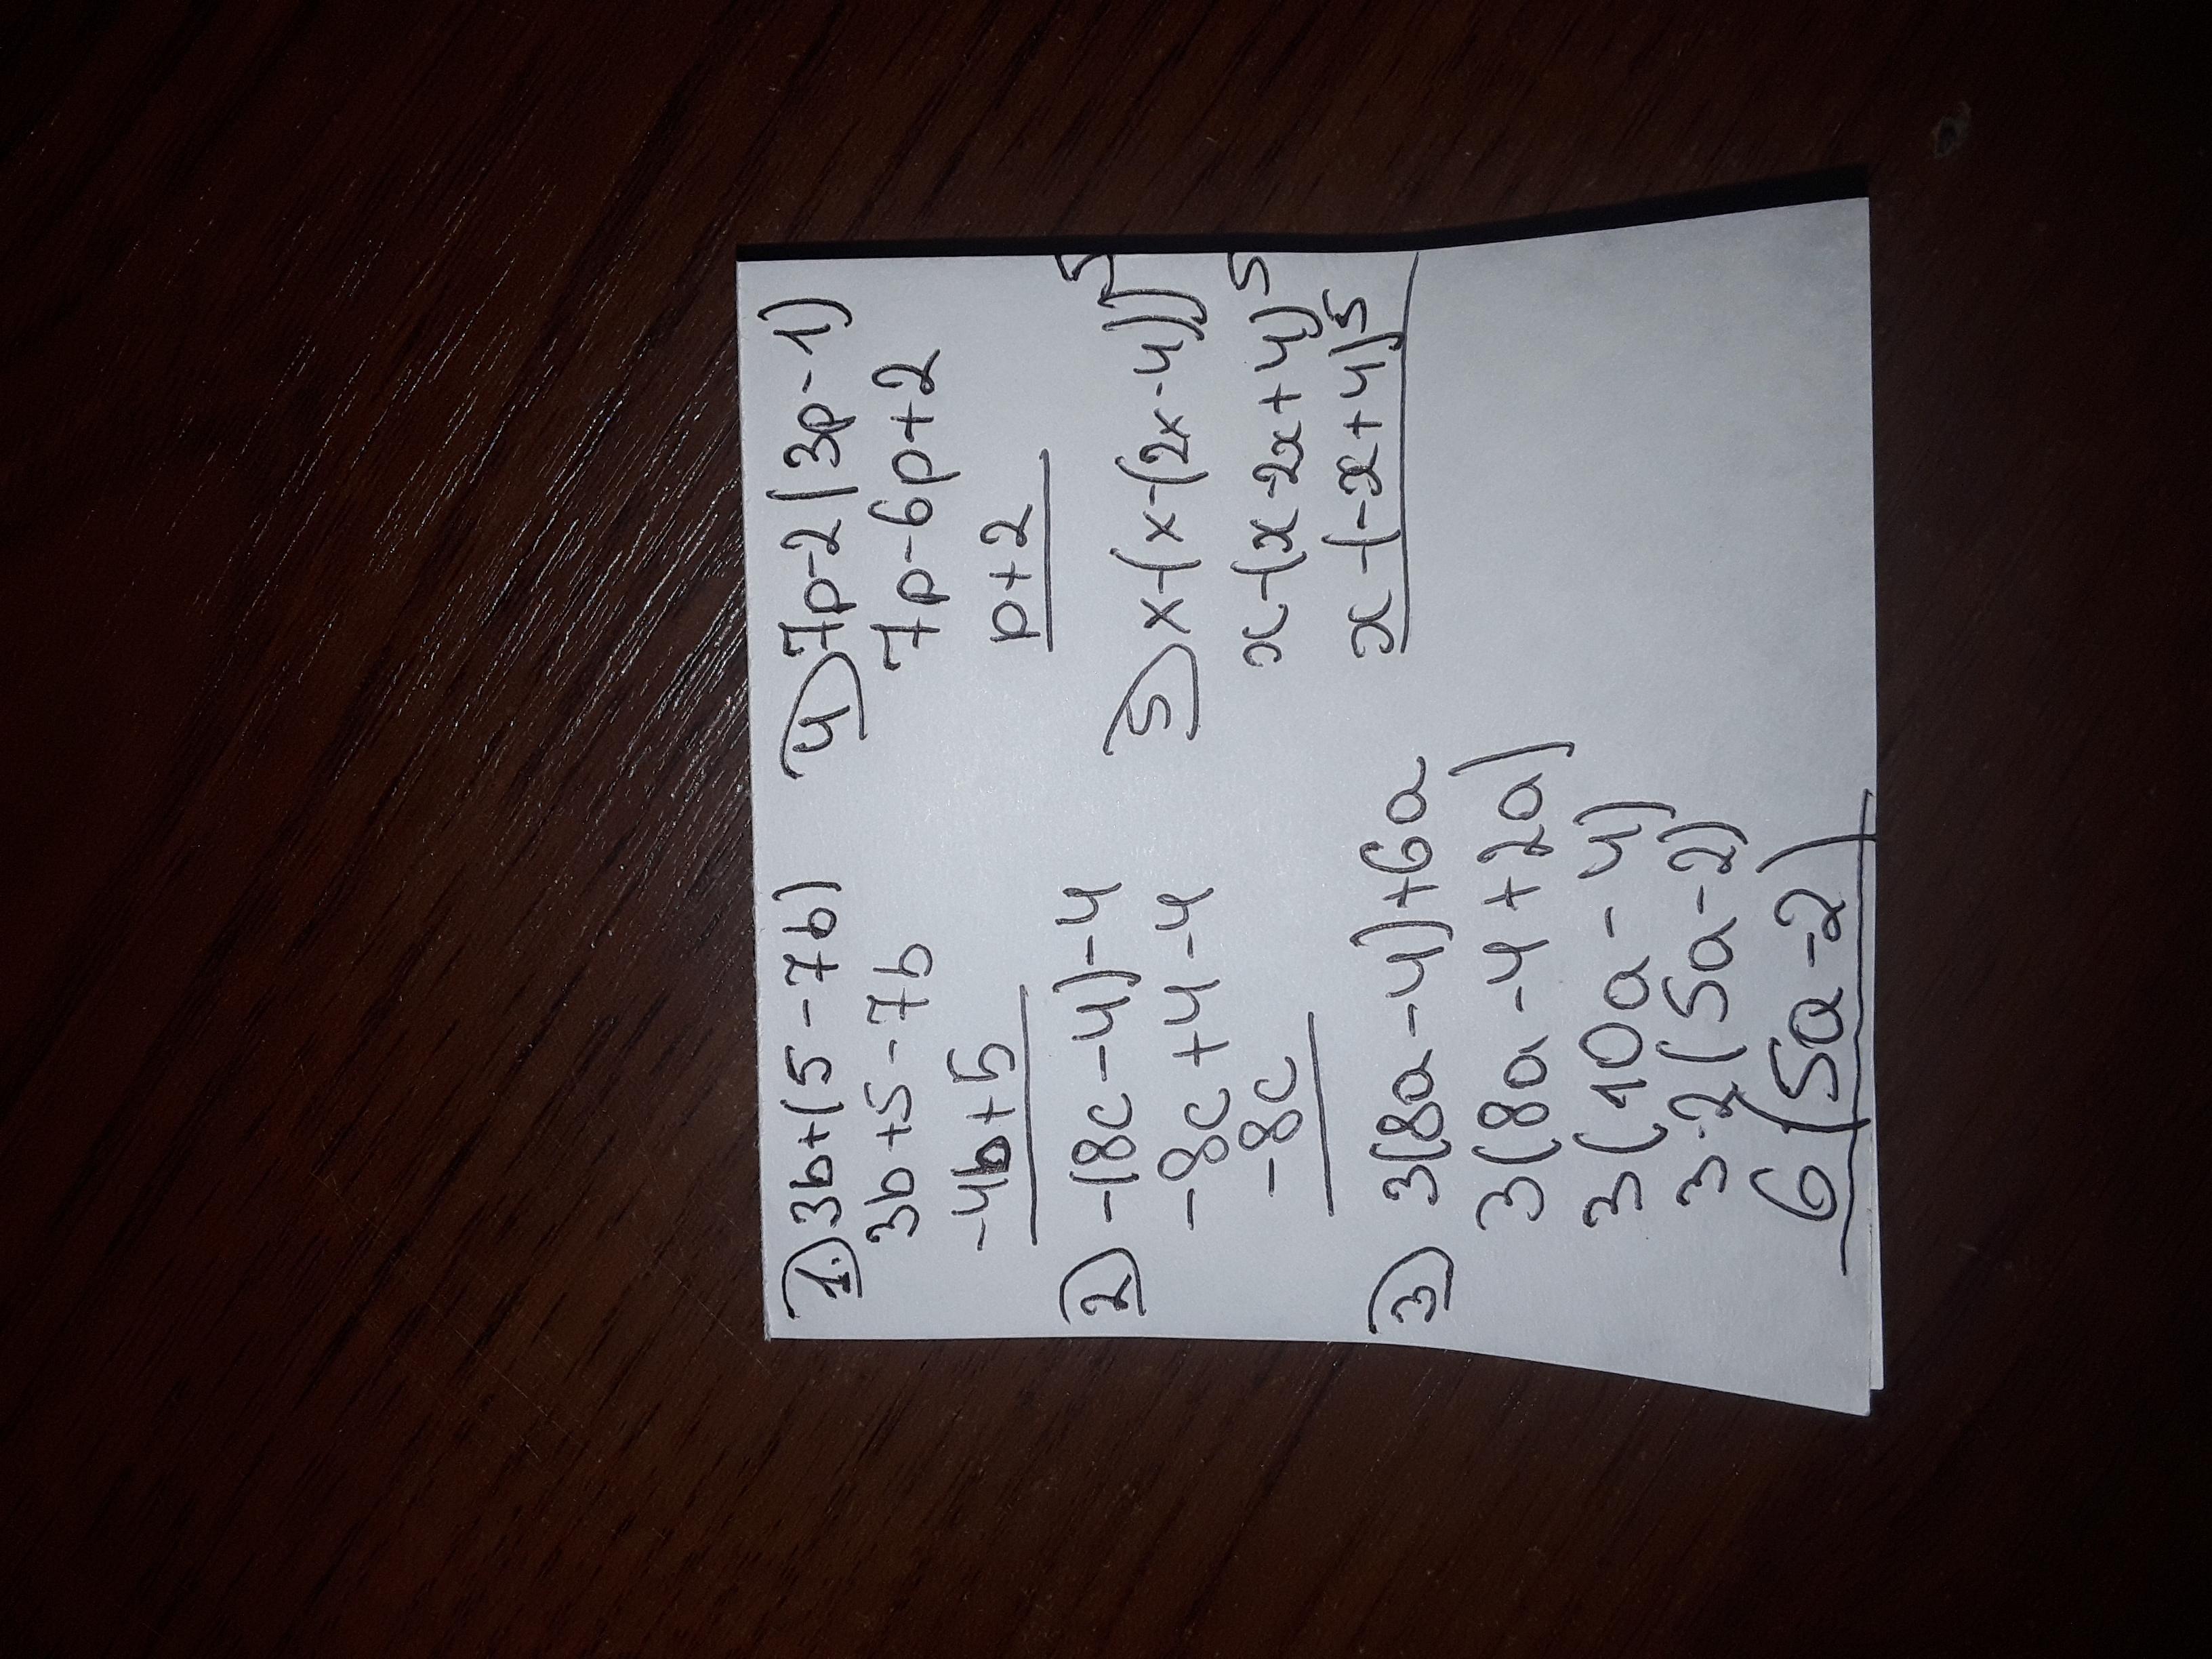 1.) 3b+(5-7b)
3b+5-7b
-4b+5
2) -(8c-4)-4
-8c+4-4
-8c
3) 3(8a-4)+6a
3(8a-4+2a)
3(10a-4)
3·2(5a-2)
6(5a-2)
4) 7p-2(3p-1)
7p-6p+2
p+2
5) x-(x-(2x-4))⁵
x-(x-2x+4)⁵
x-(-x+4)⁵